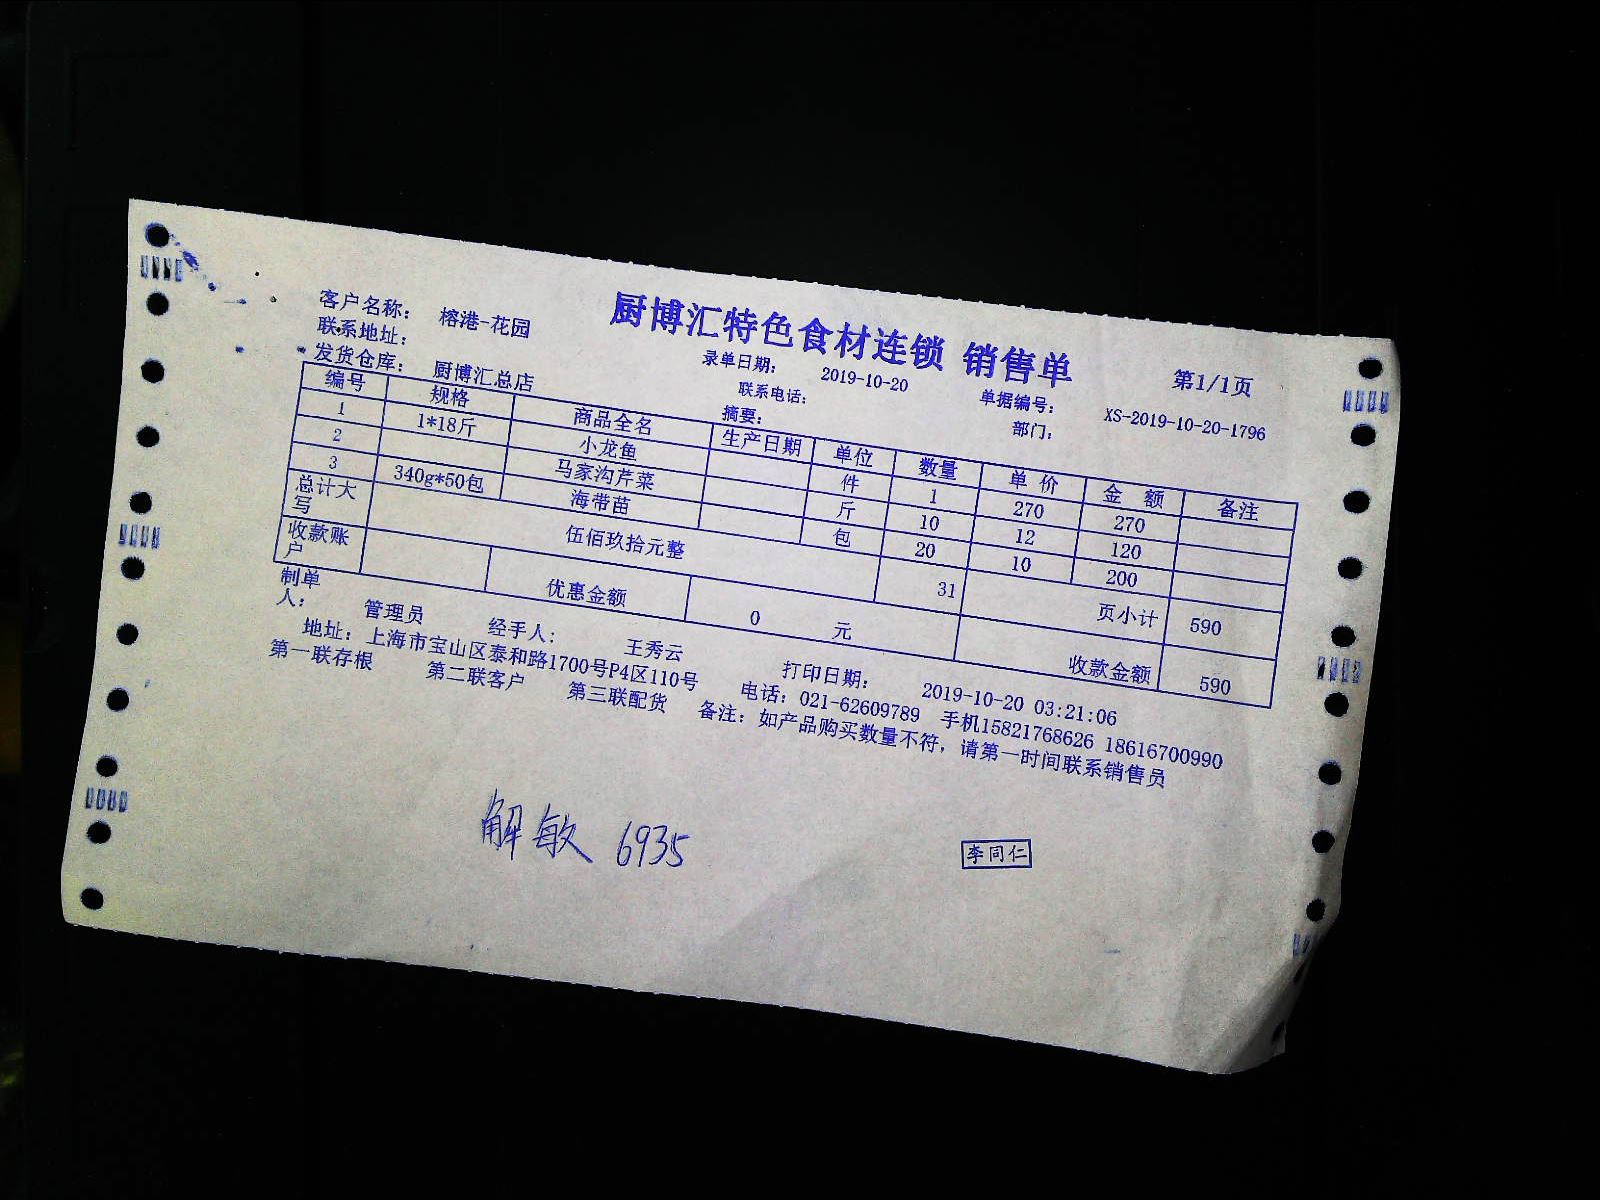 厨博汇特色食材连锁 销售单
客户名称： 榕港-花园 录单日期： 2019-10-20 单据编号： XS-2019-10-20-1796 第1/1页
联系地址： 联系电话： 部门：
发货仓库： 厨博汇总店 摘要：
编号 规格 商品全名 生产日期 单位 数量 单价 金额 备注
1 1*18斤 小龙鱼 件 1 270 270
2 马家沟芹菜 斤 10 12 120
3 340g*50包 海带苗 包 20 10 200
总计大写 伍佰玖拾元整 31 页小计 590
收款账户 优惠金额 0 元 收款金额 590
制单人： 管理员 经手人： 王秀云 打印日期： 2019-10-20 03:21:06
地址：上海市宝山区泰和路1700号P4区110号 电话：021-62609789 手机15821768626 18616700990
第一联存根 第二联客户 第三联配货 备注：如产品购买数量不符，请第一时间联系销售员
解敏 6935
李同仁